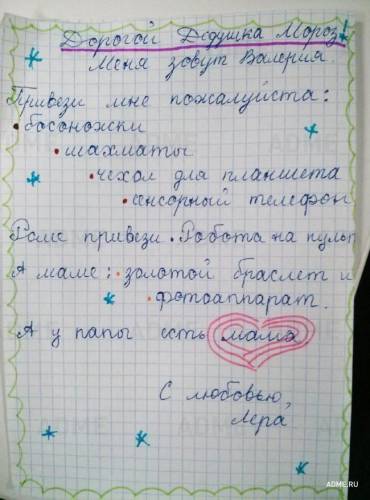 Дорогой Дедушка Мороз!
Меня зовут Валерия.
Привези мне пожалуйста:
• босоножки
• шахматы
• чехол для планшета
• сенсорный телефон
Роме привези • Робота на пульт
А маме: • золотой браслет и
• фотоаппарат.
А у папы есть мама
С любовью,
Лера
ADME.RU